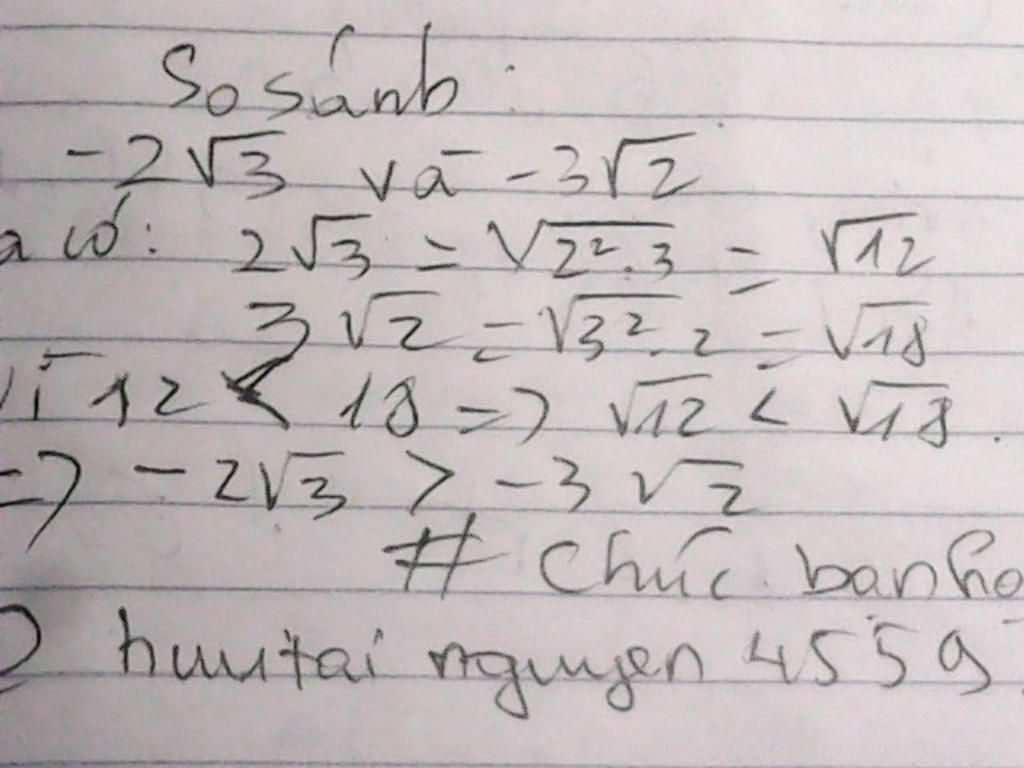 So sánh :
-2√3 và -3√2
a có: 2√3 = √2².3 = √12
3√2 = √3².2 = √18
Vì 12 < 18 => √12 < √18.
=> -2√3 > -3√2
# Chúc bạn họ
huutai nguyen 4559